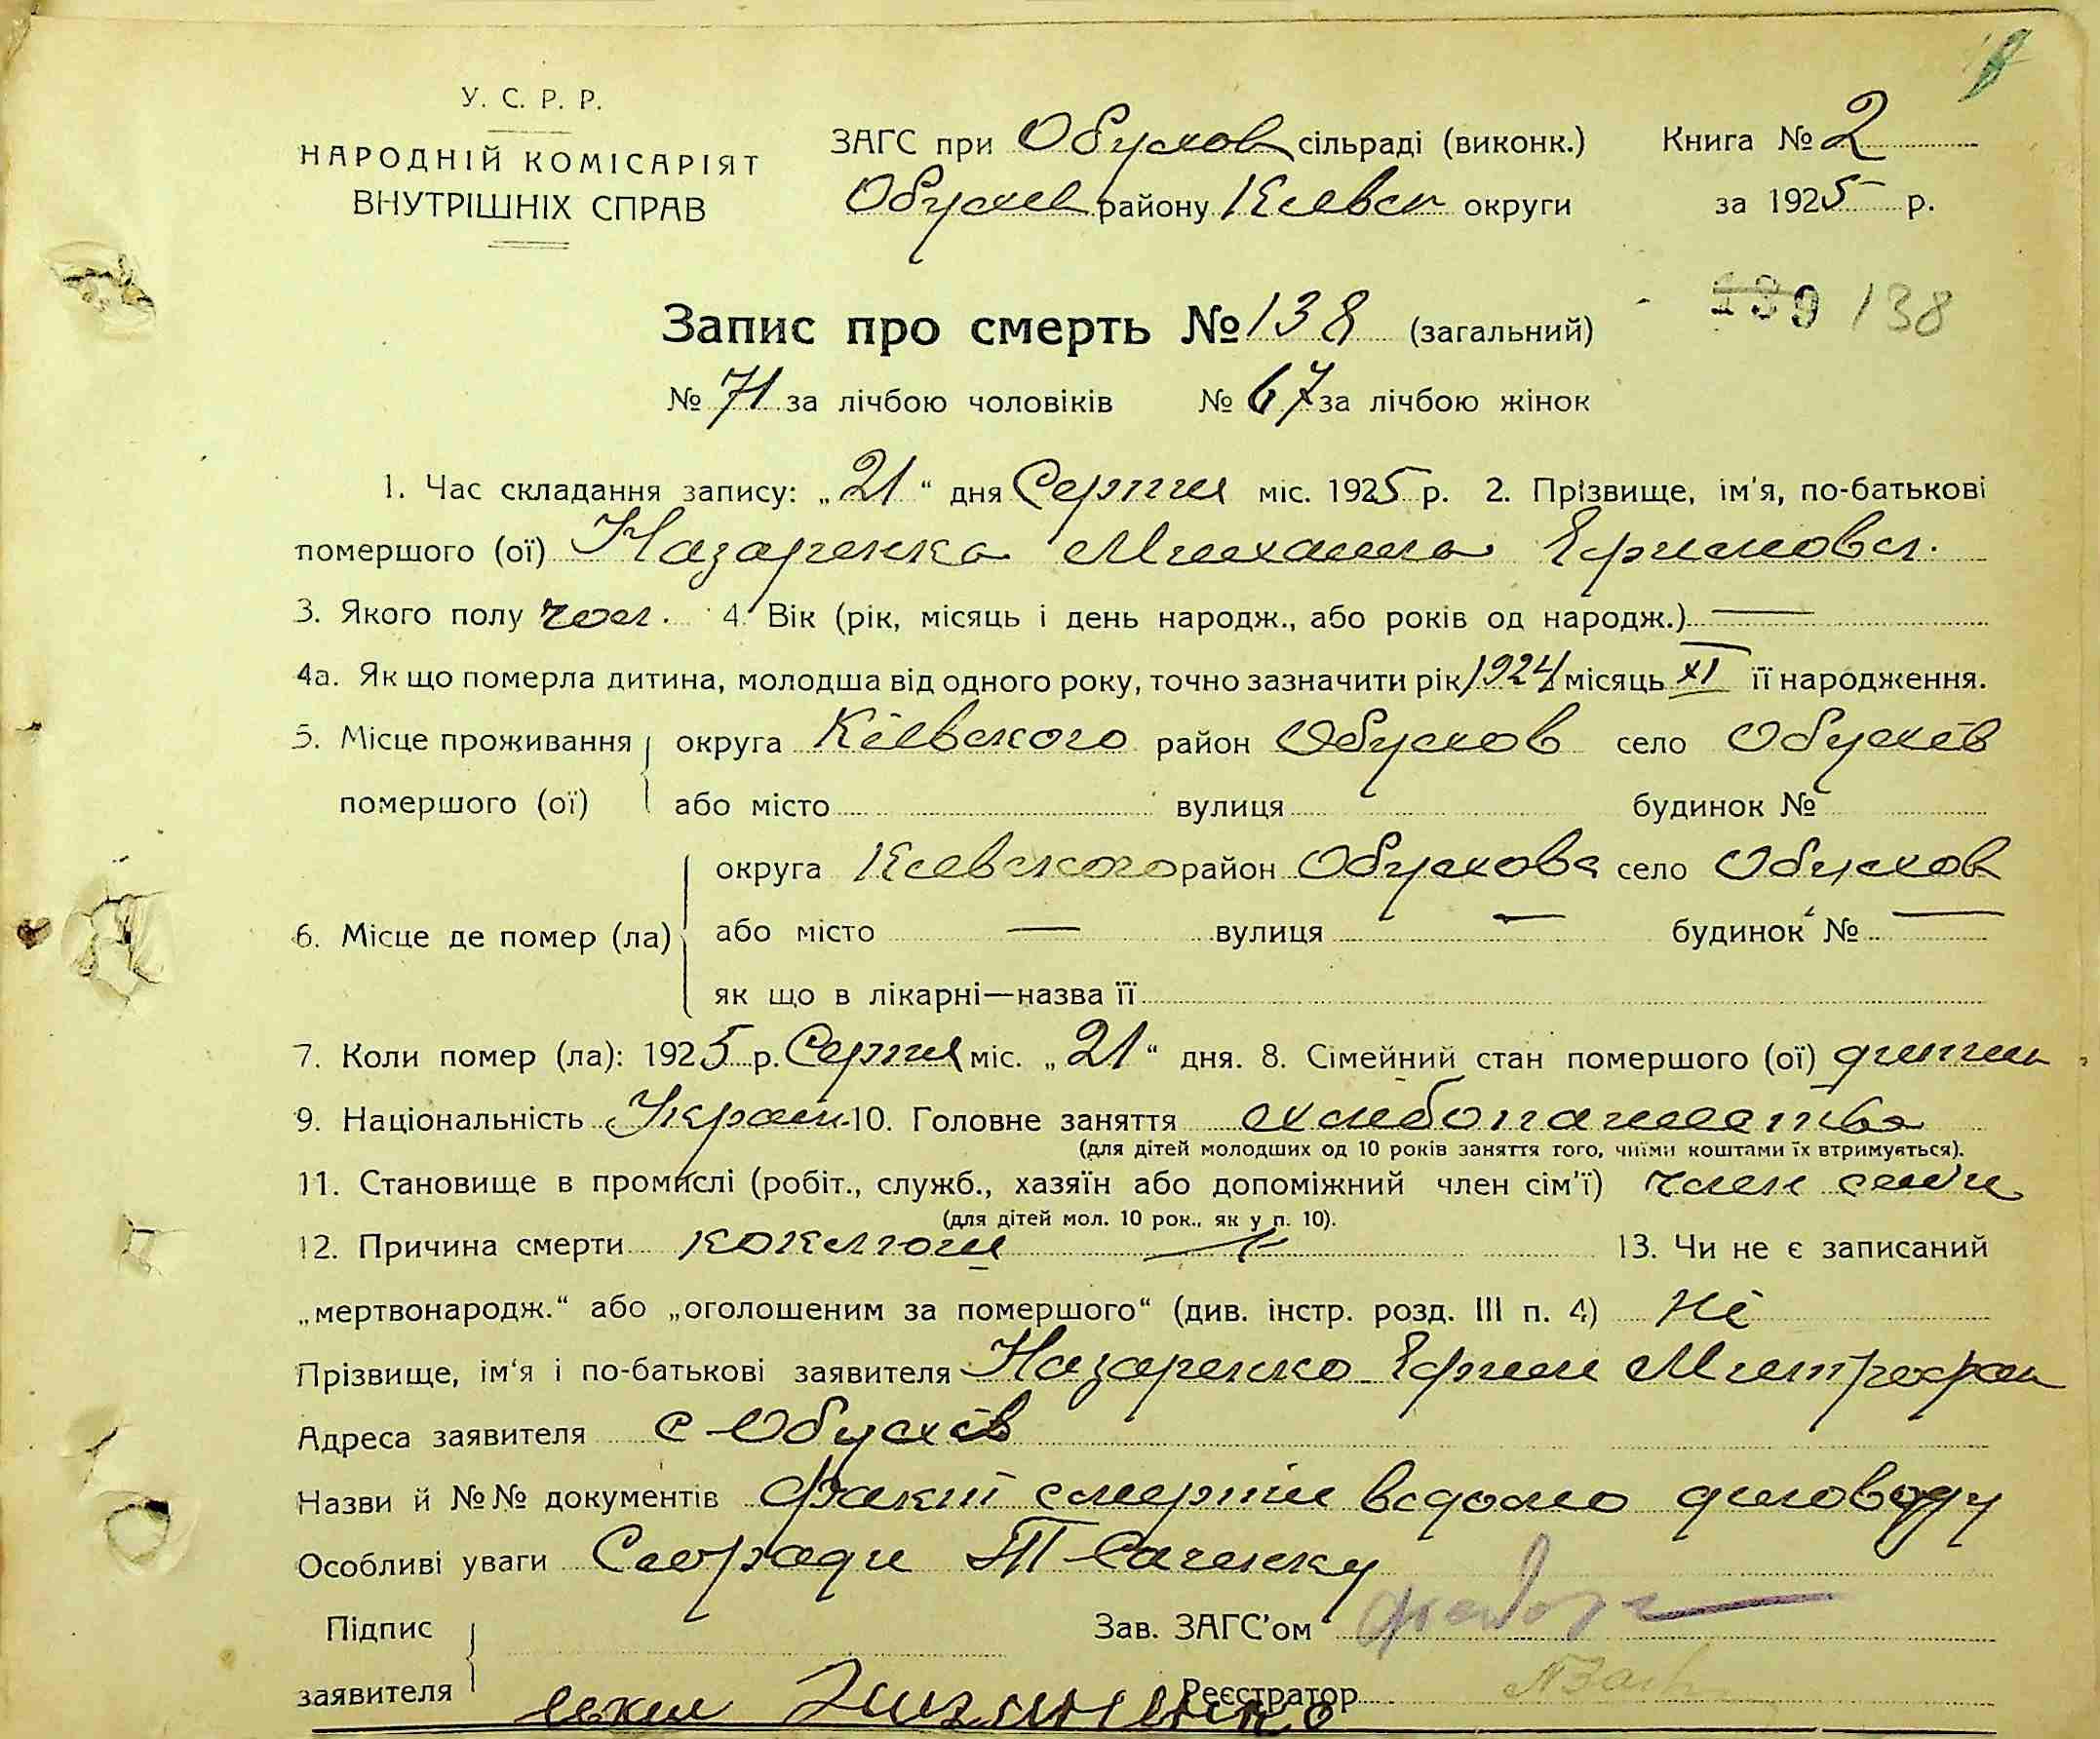 У. С. Р. Р.
НАРОДНІЙ КОМІСАРІЯТ
ВНУТРІШНІХ СПРАВ
ЗАГС при Обухов сільраді (виконк.)
Обухів району Киевск округи
Книга № 2
за 1925 р.
139 138
Запис про смерть № 138 (загальний)
№ 71 за лічбою чоловіків № 67 за лічбою жінок
1. Час складання запису: „21“ дня Серпня міс. 1925 р. 2. Прізвище, ім'я, по-батькові
помершого (ої) Назаренка Михаила Ефимова
3. Якого полу чол. 4. Вік (рік, місяць і день народж., або років од народж.) —
4а. Як що померла дитина, молодша від одного року, точно зазначити рік 1924 місяць XI її народження.
5. Місце проживання округа Кіевского район Обухов село Обухів
помершого (ої) або місто вулиця будинок №
округа Киевского район Обухова село Обухов
6. Місце де помер (ла) або місто — вулиця — будинок № —
як що в лікарні—назва її
7. Коли помер (ла): 1925 р. Серпня міс. „21“ дня. 8. Сімейний стан помершого (ої) дитина
9. Національність Украин. 10. Головне заняття хлибопашество
(для дітей молодших од 10 років заняття того, чиїми коштами їх втримується).
11. Становище в промислі (робіт., служб., хазяїн або допоміжний член сім'ї) член семи
(для дітей мол. 10 рок., як у п. 10).
12. Причина смерти коклюш 13. Чи не є записаний
„мертвонародж.“ або „оголошеним за помершого“ (див. інстр. розд. III п. 4) ні
Прізвище, ім'я і по-батькові заявителя Назаренко Ефим Митрофан
Адреса заявителя с Обухів
Назви й №№ документів Факт смерти відомо диловоду
Особливі уваги Сиоради
Підпис
заявителя
Зав. ЗАГС'ом
Реєстратор